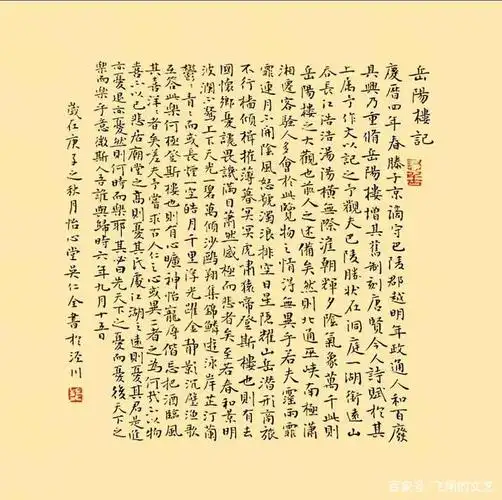 岳陽樓記
慶曆四年春滕子京謫守巴陵郡越明年政通人和百廢
具興乃重脩岳陽樓增其舊制刻唐賢今人詩賦於其
上屬予作文以記之予觀夫巴陵勝狀在洞庭一湖銜遠山
吞長江浩浩湯湯橫無際涯朝暉夕陰氣象萬千此則
岳陽樓之大觀也前人之述備矣然則北通巫峽南極瀟
湘遷客騷人多會於此覽物之情得無異乎若夫霪雨霏
霏連月不開陰風怒號濁浪排空日星隱耀山岳潛形商旅
不行檣傾楫摧薄暮冥冥虎嘯猿啼登斯樓也則有去
國懷鄉憂讒畏譏滿目蕭然感極而悲者矣至若春和景明
波瀾不驚上下天光一碧萬頃沙鷗翔集錦鱗游泳岸芷汀蘭
鬱鬱青青而或長煙一空皓月千里浮光躍金靜影沉璧漁歌
互答此樂何極登斯樓也則有心曠神怡寵辱偕忘把酒臨風
其喜洋洋者矣嗟夫予嘗求古人仁之心或異二者之為何哉不以物
喜不以己悲居廟堂之高則憂其民處江湖之遠則憂其君是進
亦憂退亦憂然則何時而樂耶其必曰先天下之憂而憂後天下之
樂而樂乎意微斯人吾誰與歸時六年九月十五日
歲在庚子之秋月怡心堂吳仁全書於涇川